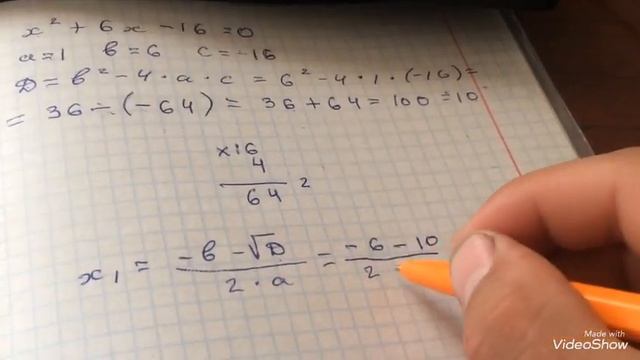 x² + 6x - 16 = 0
a = 1 в = 6 c = -16
D = в² - 4 · a · c = 6² - 4 · 1 · (-16) =
= 36 - (-64) = 36 + 64 = 100 = 10
×16
4
64
x₁ = (-в - √D) / (2 · a) = (-6 - 10) / 2
Made with
VideoShow